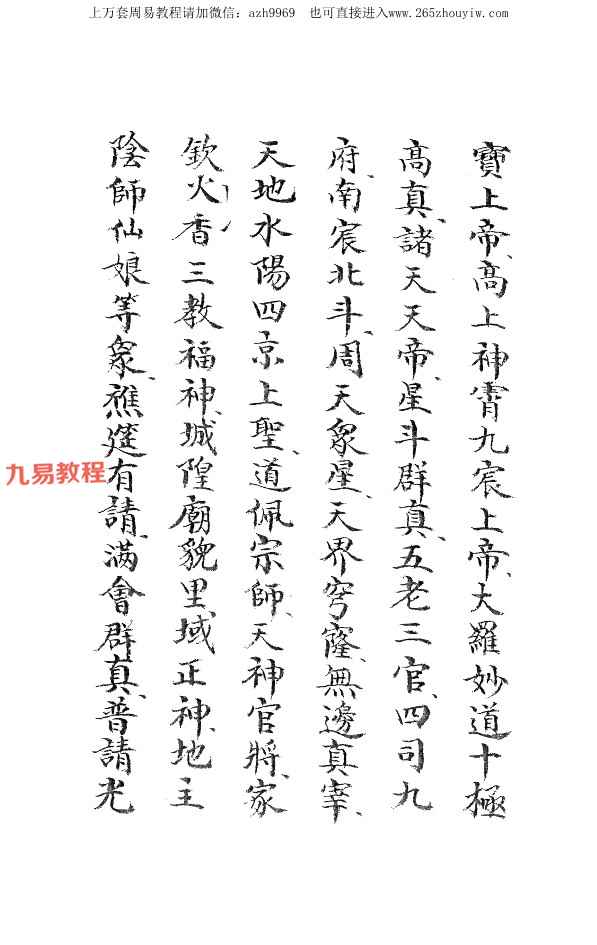 上万套周易教程请加微信：azh9969 也可直接进入www.265zhouyiw.com
寶上帝、高上神霄九宸上帝、大羅妙道十極
高真、諸天天帝、星斗群真、五老三官、四司九
府、南宸北斗、周天眾星、天界穹窿、無邊真宰、
天地水陽四京上聖、道佩宗師、天神官將、家
欽火香三教福神、城隍廟貌里域正神、地主
陰師仙娘等眾、醮筵有請、满會群真、普請光
九易教程